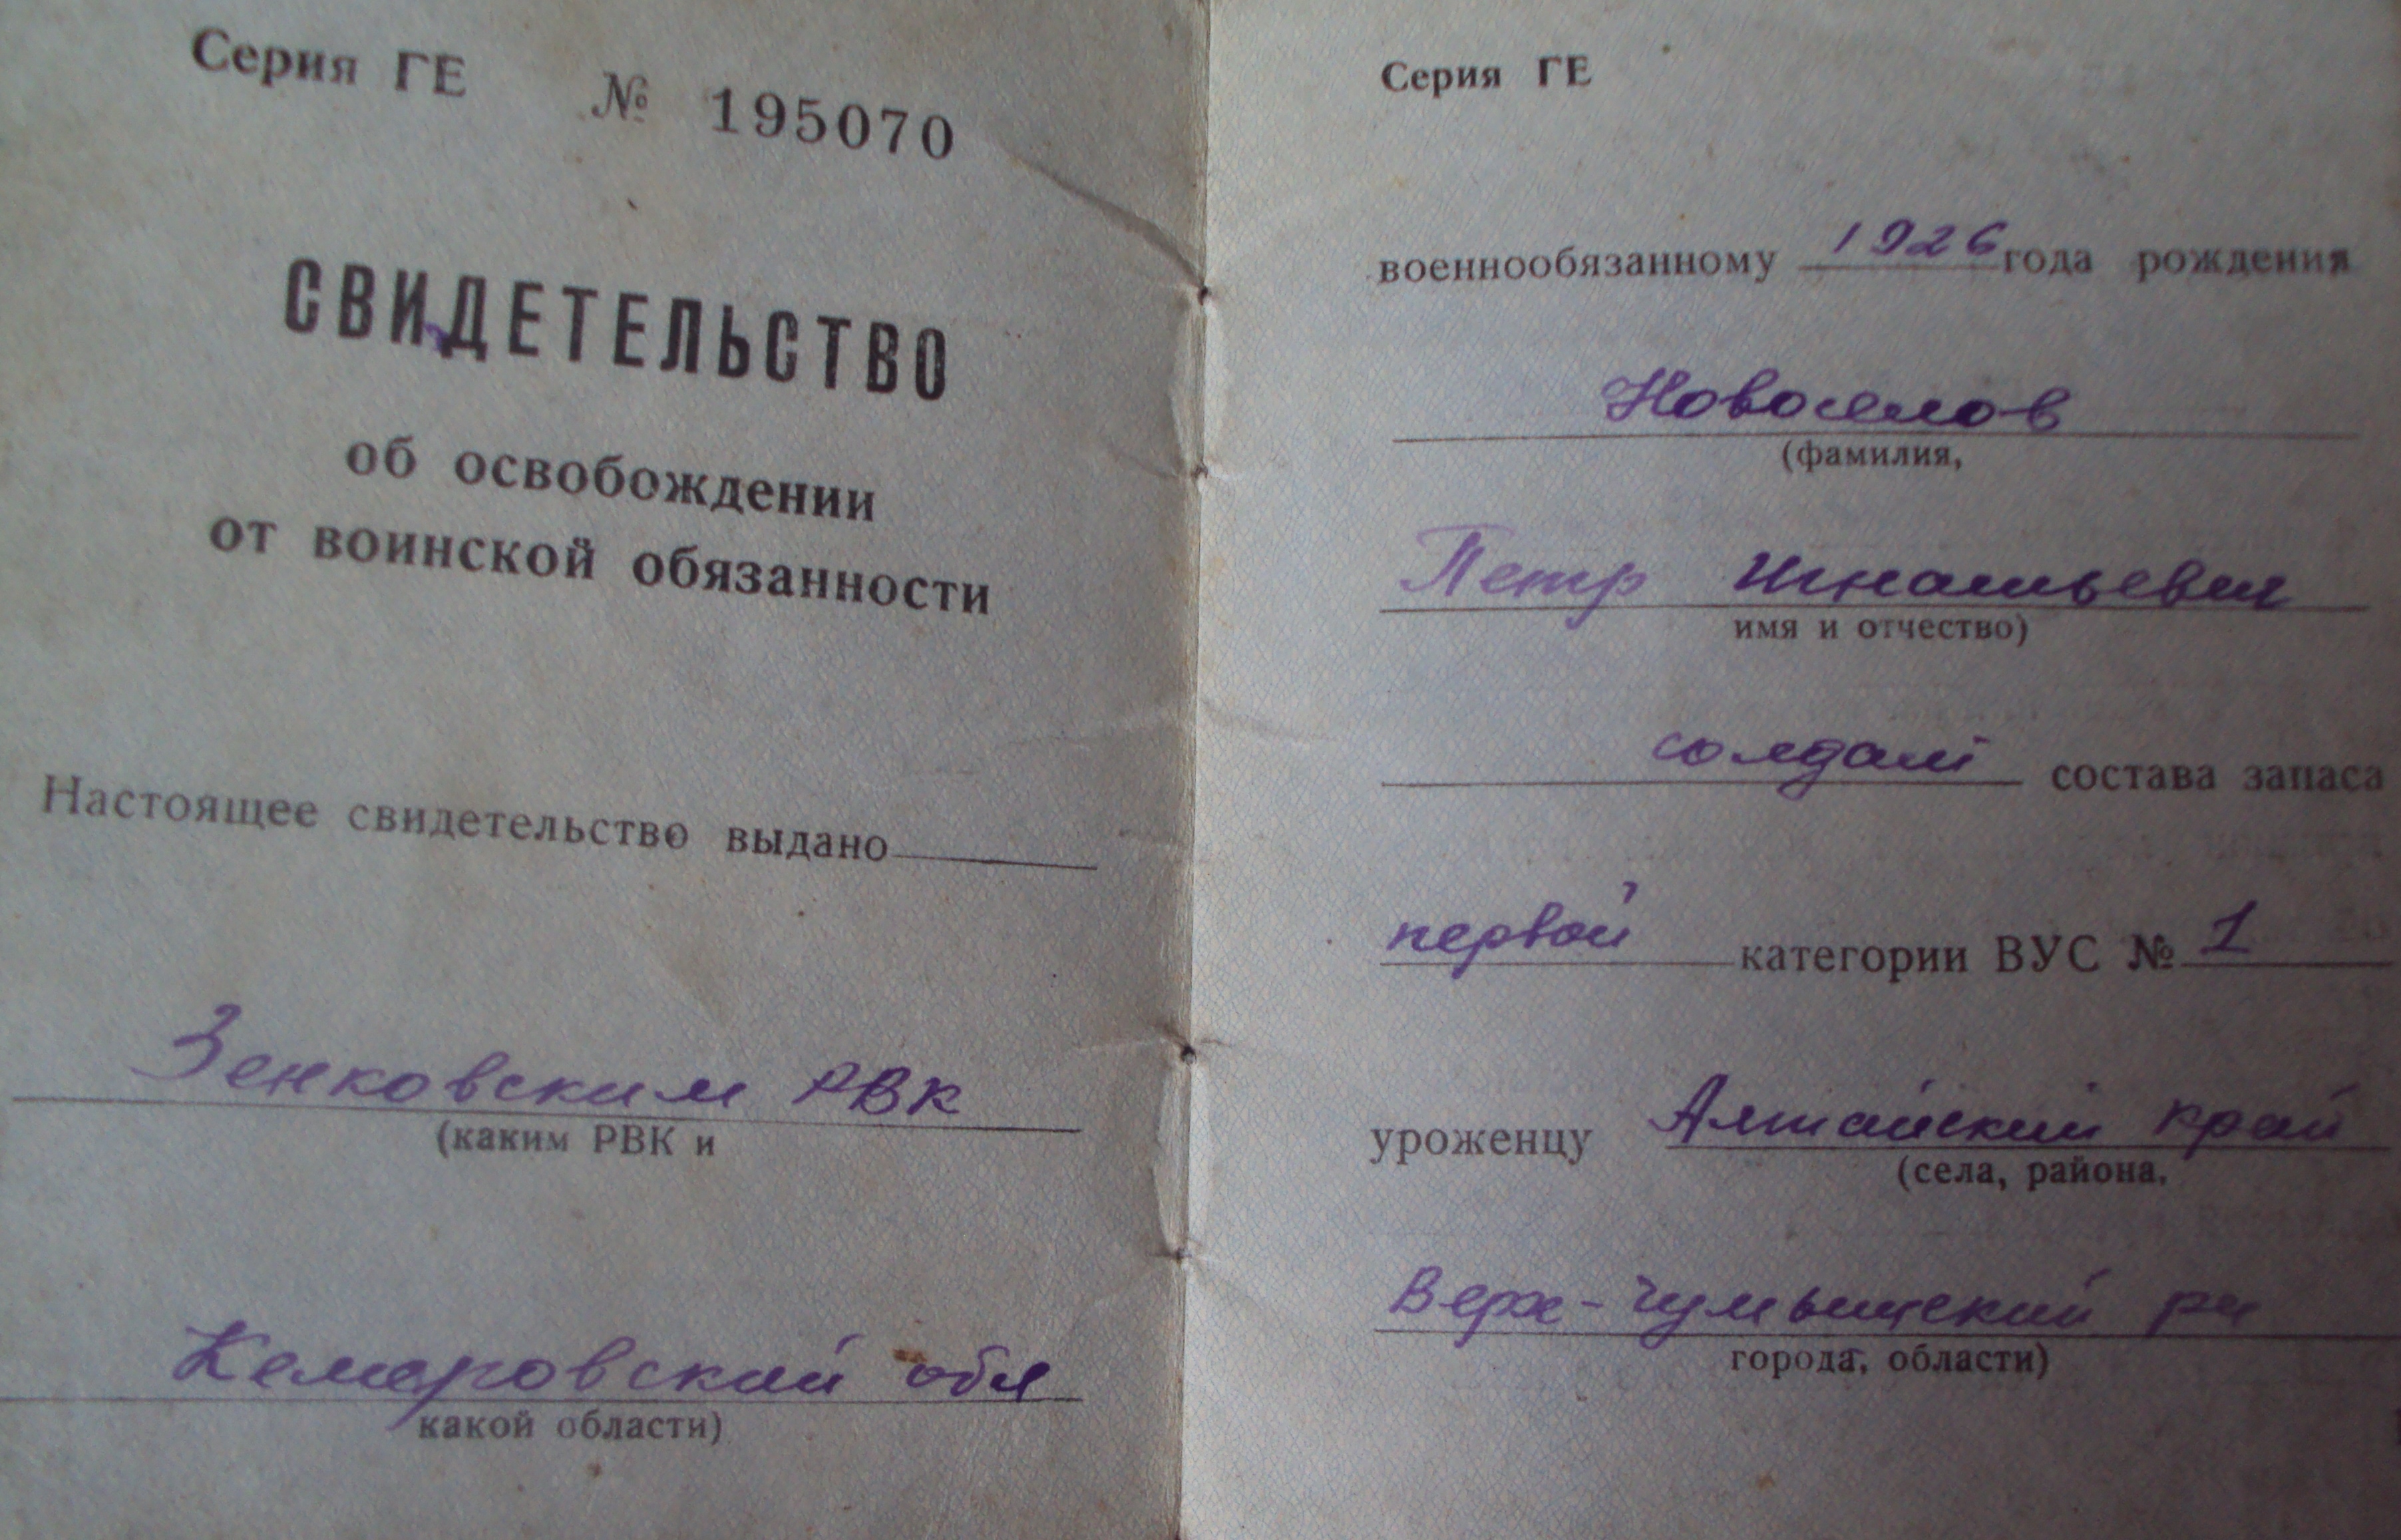 Серия ГЕ № 195070
СВИДЕТЕЛЬСТВО
об освобождении
от воинской обязанности
Настоящее свидетельство выдано
Зенковским РВК
(каким РВК и
Кемеровской обл
какой области)
Серия ГЕ
военнообязанному 1926 года рождения
Новоселов
(фамилия,
Петр Игнатьевич
имя и отчество)
солдат состава запаса
первой категории ВУС № 1
уроженцу Алтайский край
(села, района,
Верх-Чумышский рн
города, области)